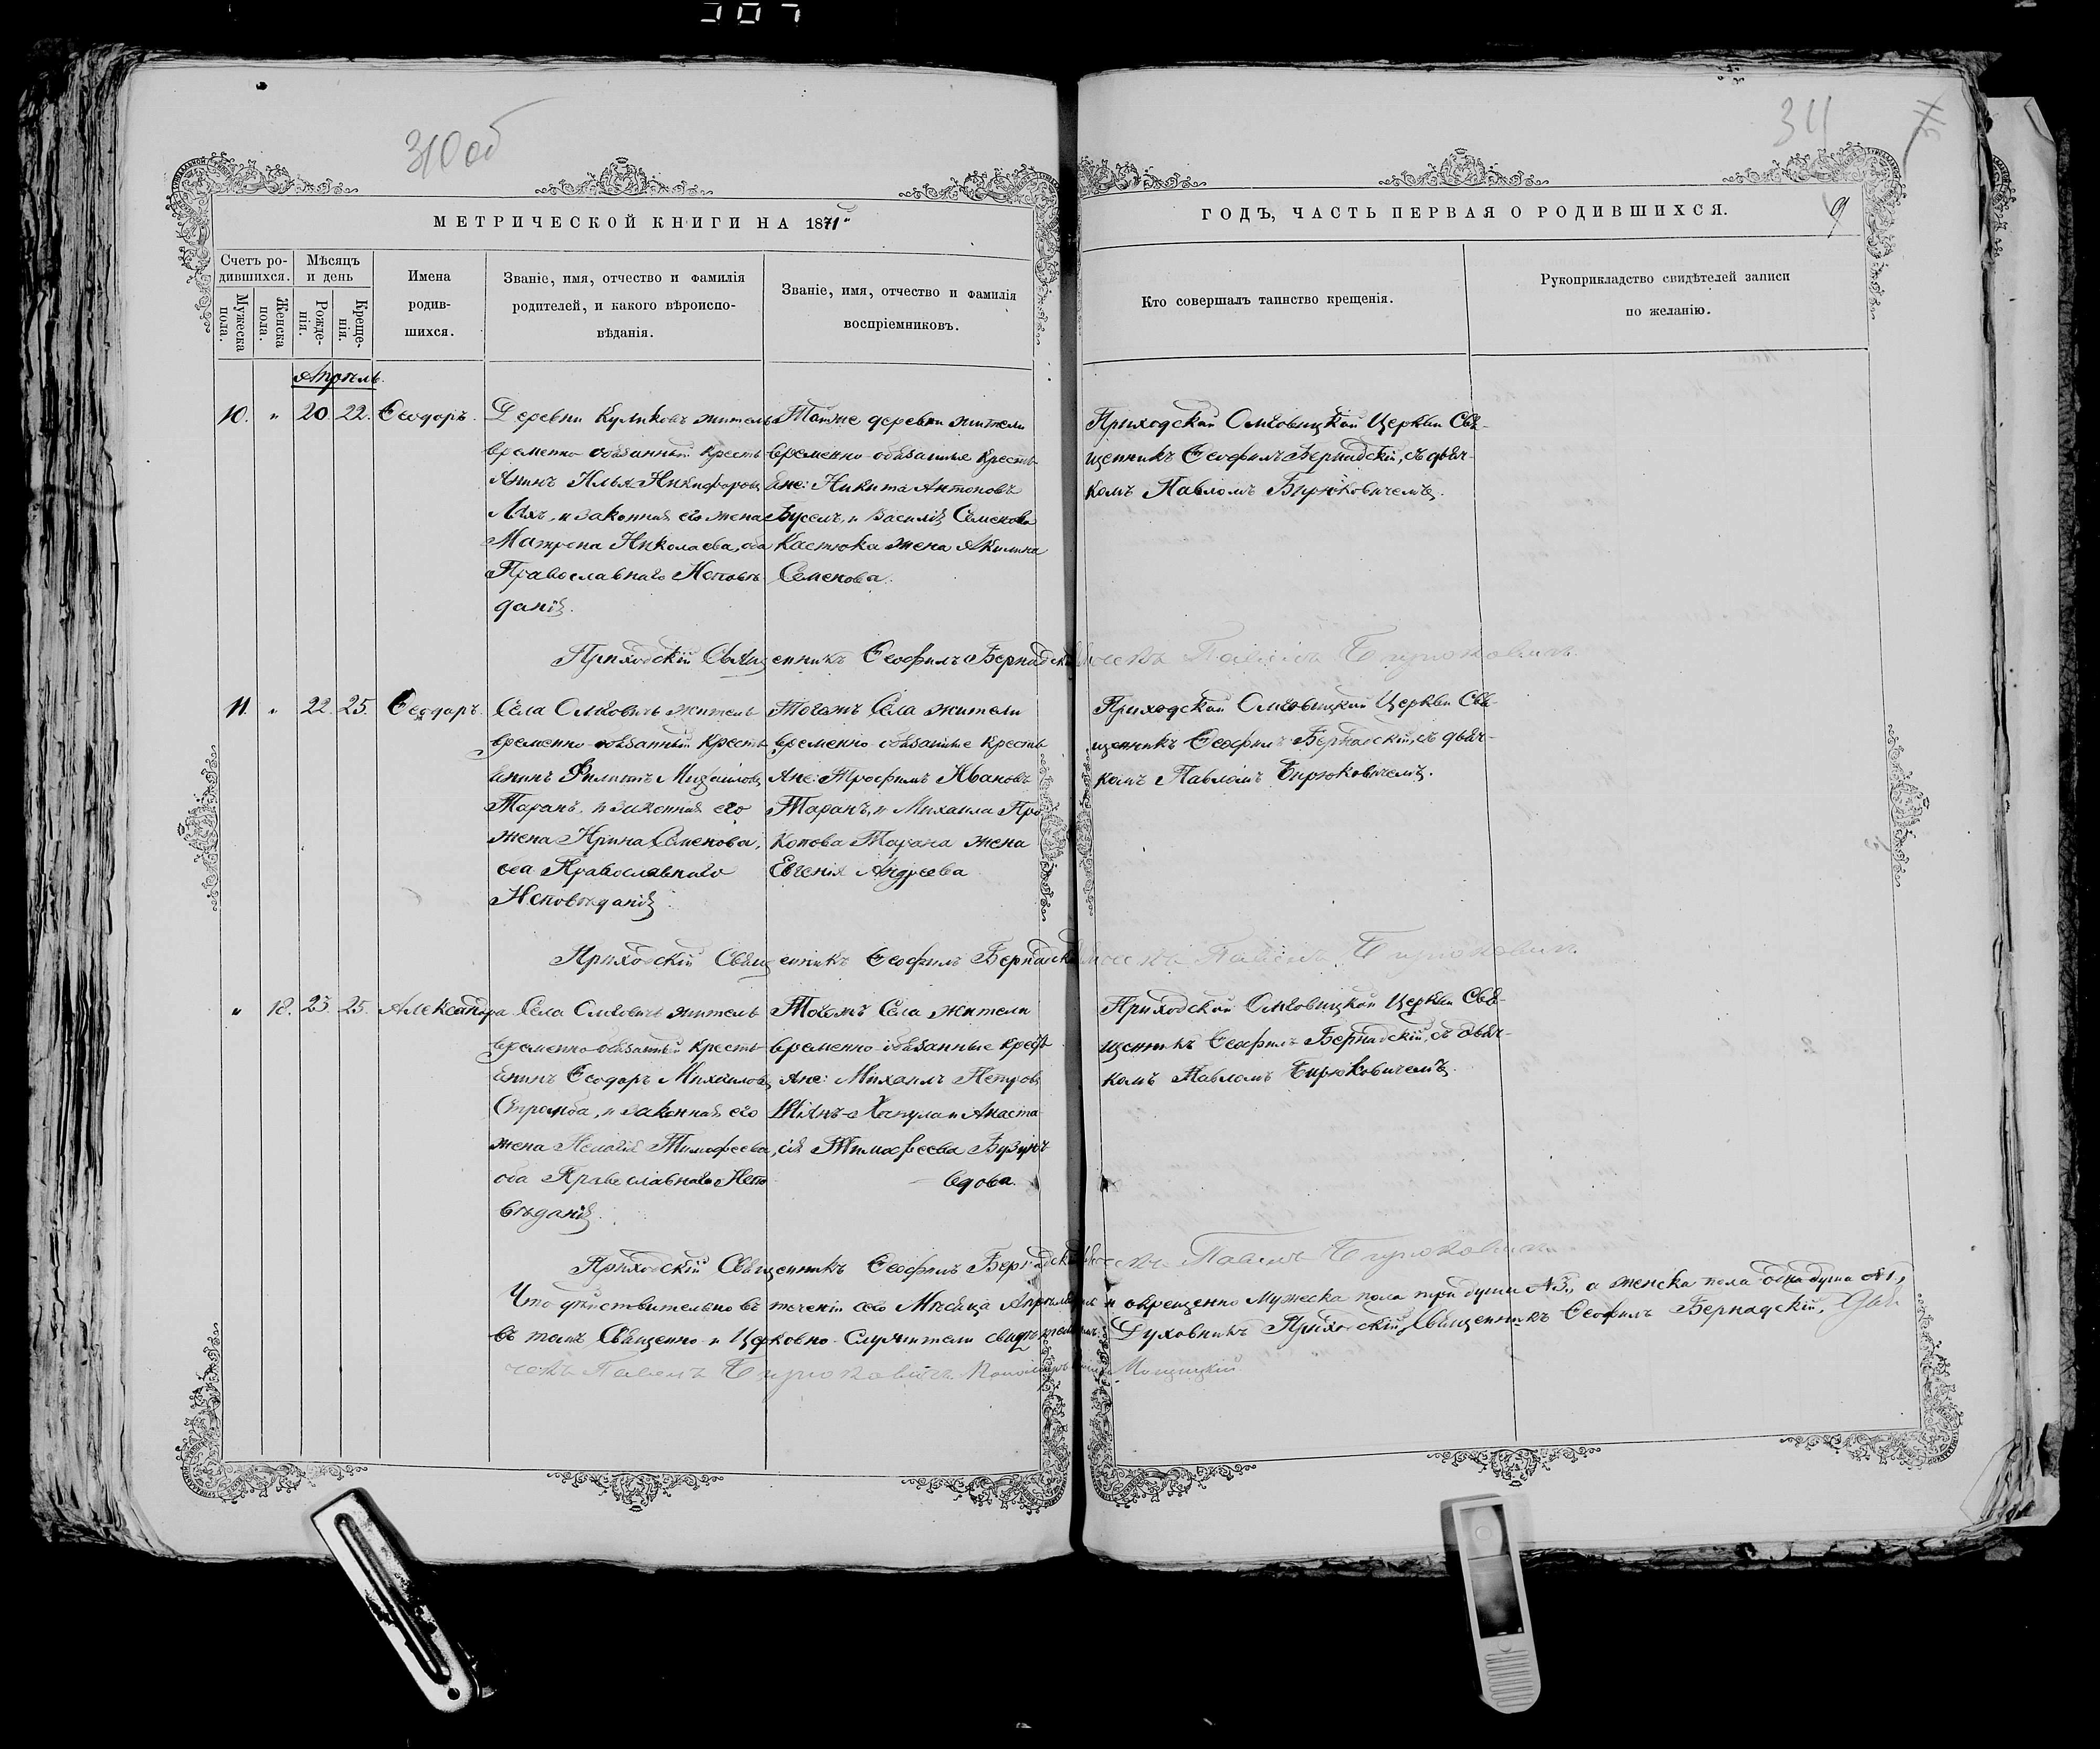 310 об
311
МЕТРИЧЕСКОЙ КНИГИ НА 1871
ГОДЪ, ЧАСТЬ ПЕРВАЯ О РОДИВШИХСЯ.
9
Счетъ ро-
дившихся.
Мужеска
пола.
Женска
пола.
Мѣсяцъ
и день
Рожде-
нія.
Креще-
нія.
Имена
родив-
шихся.
Званіе, имя, отчество и фамилія
родителей, и какого вѣроиспо-
вѣданія.
Званіе, имя, отчество и фамилія
воспріемниковъ.
Кто совершалъ таинство крещенія.
Рукоприкладство свидѣтелей записи
по желанію.
Апрѣль.
10. " 20 22. Ѳеодоръ.
Деревни Куликовъ житель
временно-обязанный кресть-
янинъ Илья Никифоровъ
Ляхъ, и законная его жена
Матрена Николаева, оба
Православнаго Исповѣ-
данія.
Тойже деревни жители
временно-обязанные кресть-
яне: Никита Антоновъ
Бусел, и Василія Семенова
Костюка жена Акилина
Семенова.
Приходской Церкви Свя-
щенникъ Ѳеофилъ Бернадскій, съ дьяч-
комъ Павломъ Бирюковичемъ.
Приходскій Священникъ Ѳеофилъ Бернадскій Дьячекъ Павелъ Бирюковичъ
11. " 22. 25. Ѳеодоръ.
Села житель
временно-обязанный кресть-
янинъ Филиппъ Михайловъ
Таранъ, и законная его
жена Ирина Семенова,
оба Православнаго
Исповѣданія.
Тогожъ Села жители
временно-обязанные кресть-
яне: Трофимъ Ивановъ
Таранъ, и Михаила Про-
копова Тарана жена
Евгенія Андреева
Приходской Церкви Свя-
щенникъ Ѳеофилъ Бернадскій, съ дьяч-
комъ Павломъ Бирюковичемъ.
Приходскій Священникъ Ѳеофилъ Бернадскій Дьячекъ Павелъ Бирюковичъ
" 18. 23. 25. Александра
Села житель
временно-обязанный кресть-
янинъ Ѳеодоръ Михайловъ
и законная его
жена Пелагія Тимофеева,
оба Православнаго Испо-
вѣданія.
Тогожъ Села жители
временно-обязанные кресть-
яне: Михаилъ Петровъ
и Анаста-
сія Тимофеева
Приходской Церкви Свя-
щенникъ Ѳеофилъ Бернадскій, съ дьяч-
комъ Павломъ Бирюковичемъ.
Приходскій Священникъ Ѳеофилъ Бернадскій Дьячекъ Павелъ Бирюковичъ
Что дѣйствительно въ теченіи сего Мѣсяца Апрѣля и окрещенно Мужеска пола три души №3., а женска пола одна душа №1.,
въ томъ Священно и Церковно-Служители свидѣтельствуемъ: Духовникъ Приходскій Священникъ Ѳеофилъ Бернадскій, Дья-
чекъ Павелъ Бирюковичъ